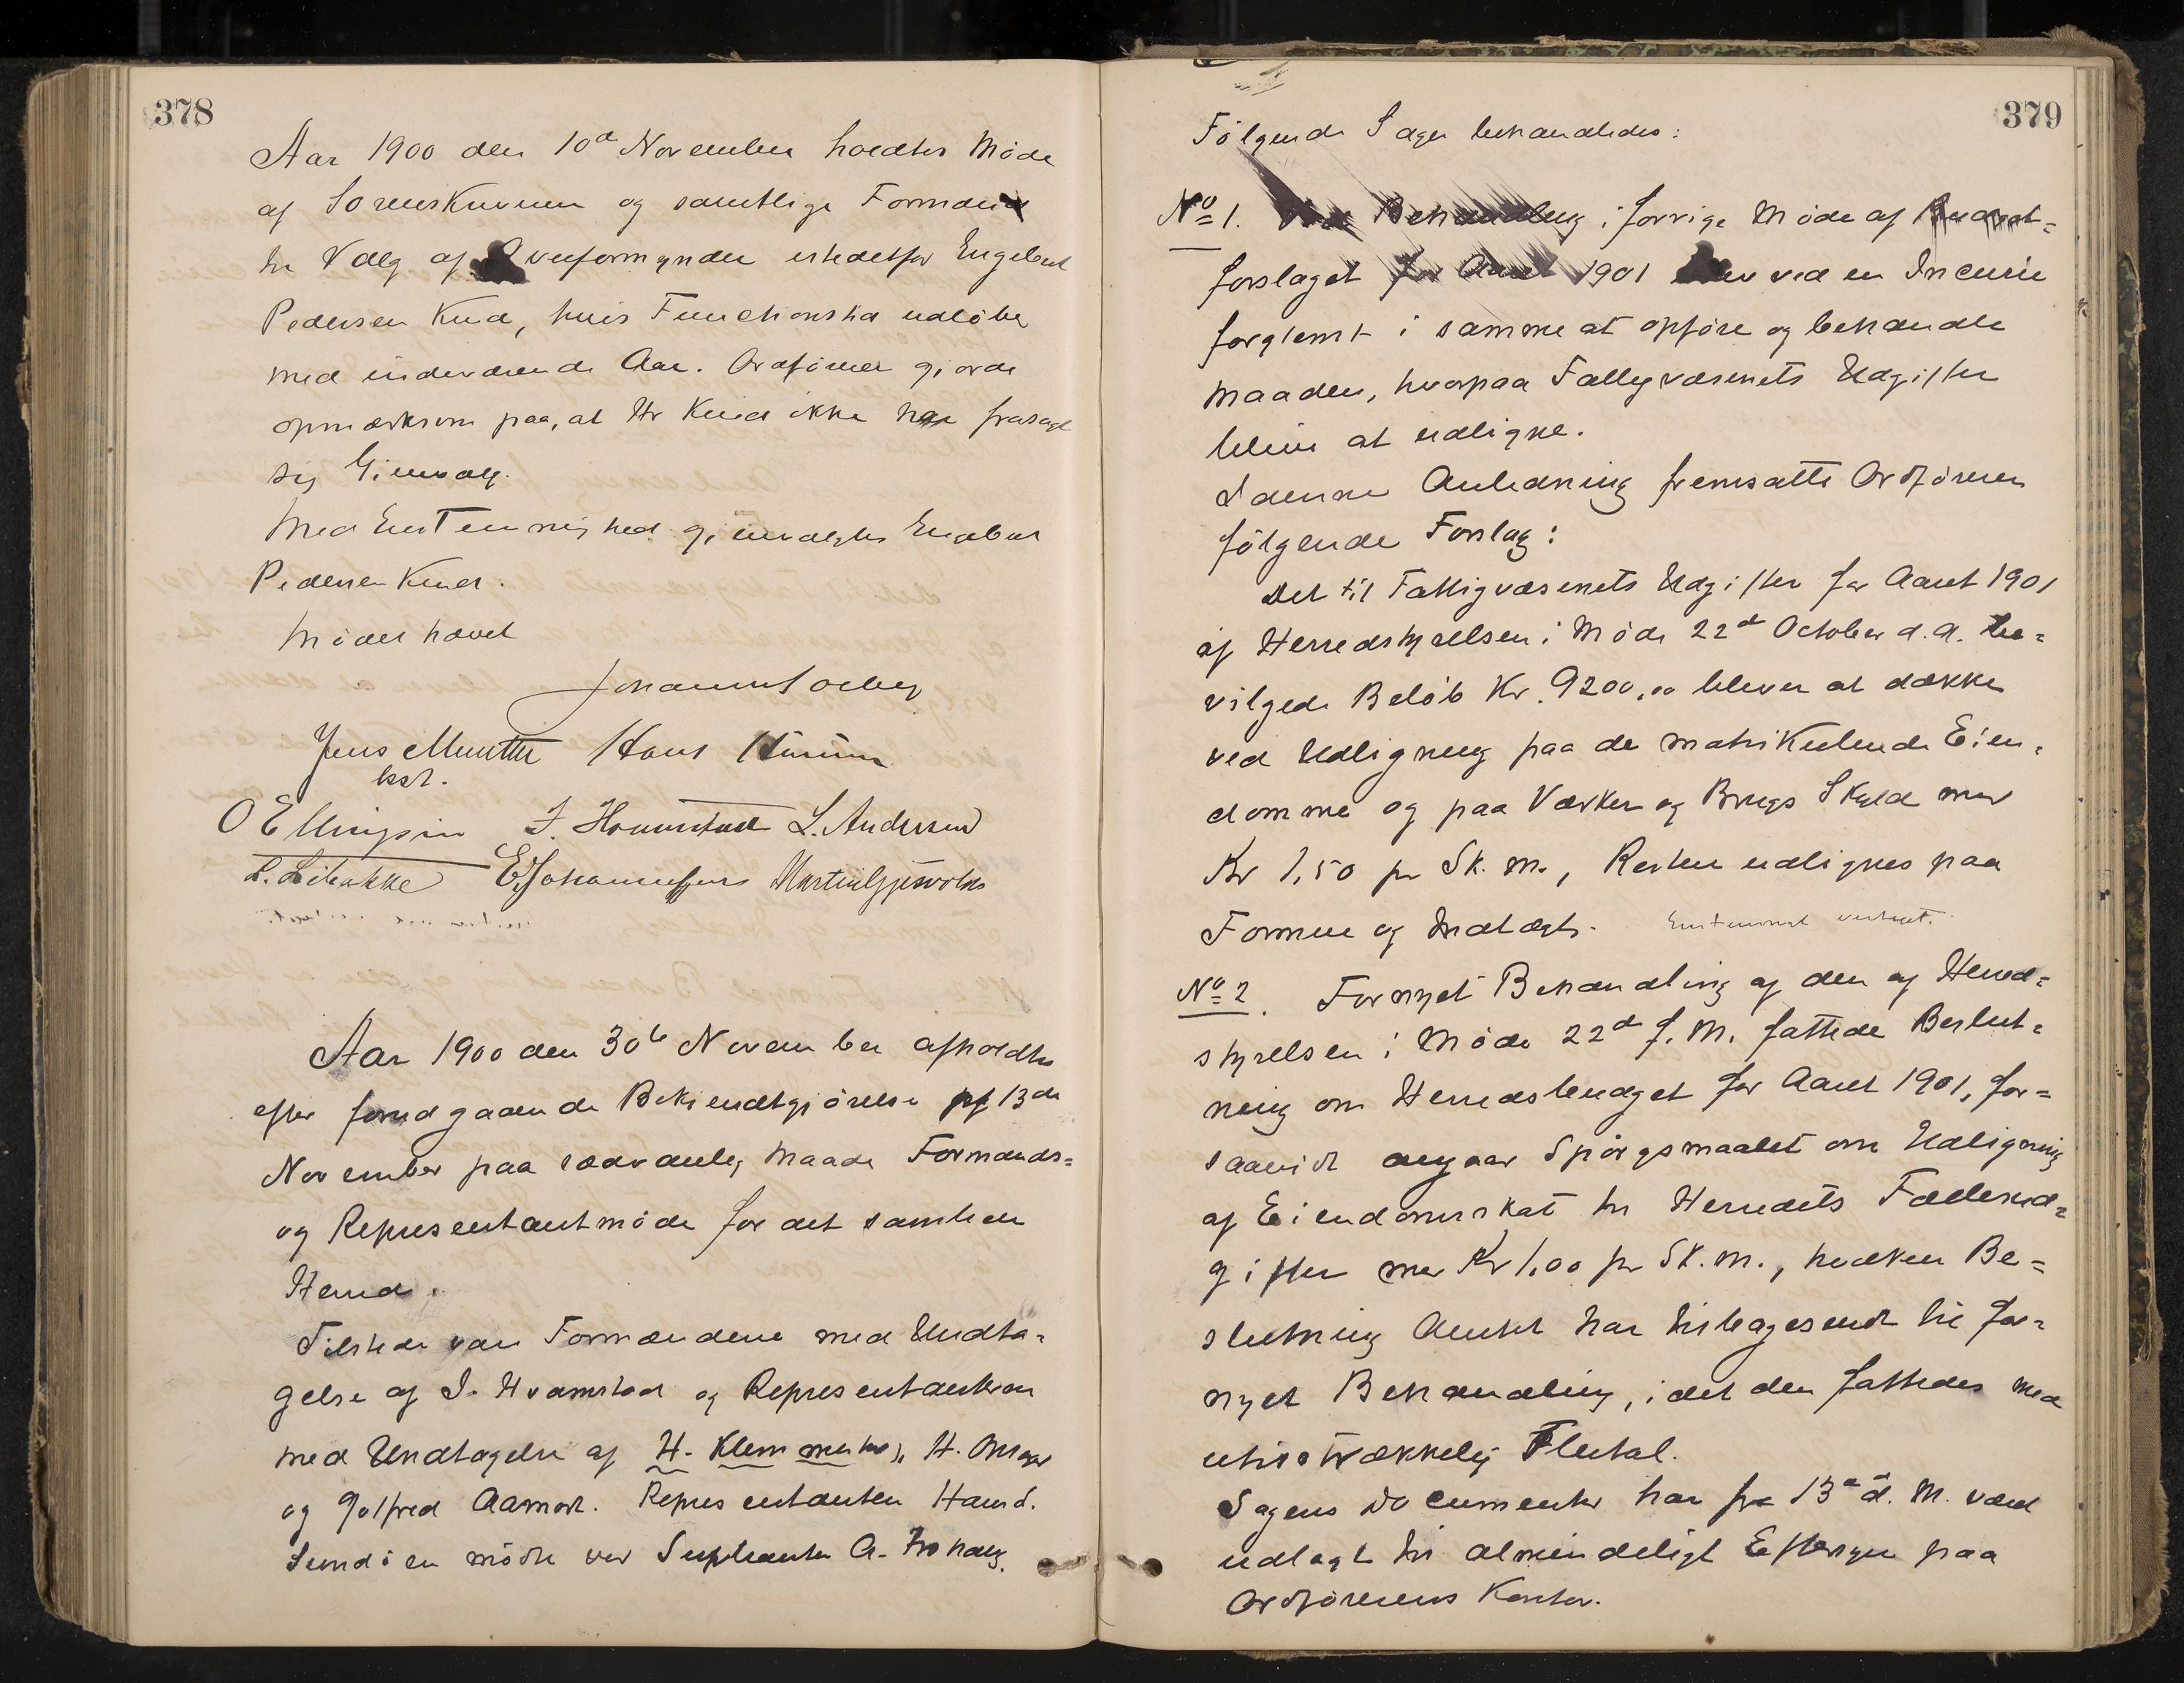 378
Aar 1900 den 10d November holdtes Møde
af Sorenskriveren og samtlige Formænd
til Valg af Overformynder istedetfor Engebret
Pedersen Knud, hvis Functionstid udløber
med indeværende Aar. Ordføreren gjorde
opmærksom paa, at Hr Knud ikke har frasagt
sig Gjenvalg.
Med Enstemmighed gjenvalgtes Engebret
Pedersen Knud.
Mødet hævet
Johannes
Jens Munthe Hans
kst.
O Ellingsen L. Andersen
E. Johannessen Martin
Aar 1900 den 30te November afholdtes
efter forudgaaende Bekjendtgjørelse af 13de
November paa sædvanlig Maade Formands=
og Representantmøde for det samlede
Herred.
Tilstede var Formændene med Undta=
gelse af I. Hvamstad og Representanterne
med Undtagelse af H. Klemmetsen, H.
og Golfred Aamodt. Representanten Hans S.
mødte ved Suplianten A.
379
Følgende Sager behandledes:
No 1. Behandling i forrige Møde af Budget=
forslaget for Aaret 1901 blev ved en Incurie
forglemt i samme at opføre og behandle
Maaden, hvorpaa Fattigvæsenets Udgifter
bliver at udligne.
I denne Anledning fremsatte Ordføreren
følgende Forslag:
Det til Fattigvæsenets Udgifter for Aaret 1901
af Herredstyrelsen i Møde 22d October d. A. be=
vilgede Beløb Kr. 9200,00 bliver at dække
ved Udligning paa de matrikulerede Eien=
domme og paa Værker og Brugs Skyld med
Kr 1,50 pr Sk. M., Resten udlignes paa
Formue og Indtægt. Enstemmigt vedtaget.
No 2. Fornyet Behandling af den af Herred=
styrelsen i Møde 22d f. M. fattede Beslut=
ning om Herredsbudget for Aaret 1901, for=
saavidt angaar Spørgsmaalet om Udligning
af Eiendomsskat til Herredets Fællesud=
gifter med Kr 1,00 pr Sk. M., hvilken Be=
slutning Amtet har tilbagesendt til for=
nyet Behandling, idet den fattedes med
utilstrækkelig Flertal.
Sagens Documenter har fra 13de d. M. været
udlagt til almindeligt Eftersyn paa
Ordførerens Kontor.